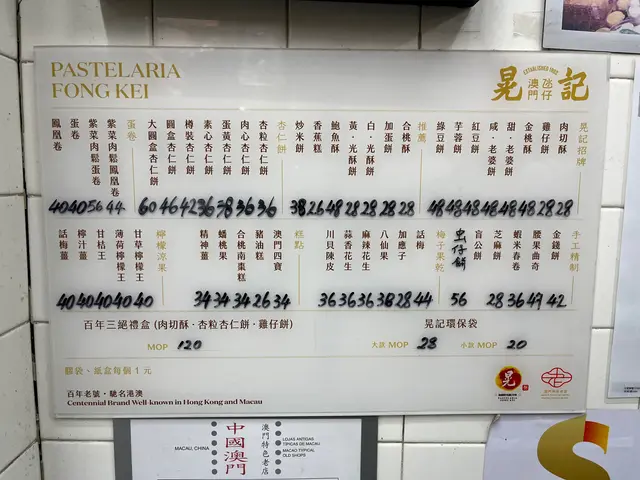 PASTELARIA
FONG KEI
ESTABLISHED 1906
晃記
澳門
氹仔
晃記招牌
肉切酥 28
雞仔餅 28
金桃酥 48
甜·老婆餅 48
咸·老婆餅 48
紅豆餅 48
芋蓉餅 48
綠豆餅 48
推薦
合桃酥 28
加蛋酥 28
白·光酥餅 28
黃·光酥餅 28
鮑魚酥 48
香蕉糕 26
炒米餅 38
杏仁餅
杏粒杏仁餅 36
肉心杏仁餅 36
蛋黃杏仁餅 38
素心杏仁餅 36
樽裝杏仁餅 42
圓盒杏仁餅 46
大圓盒杏仁餅 60
蛋卷
紫菜肉鬆鳳凰卷 44
紫菜肉鬆蛋卷 56
蛋卷 40
鳳凰卷 40
手工精制
金錢餅 42
腰果曲奇 47
蝦米春卷 36
芝麻餅 28
盲公餅
虫仔餅 56
梅子果乾
話梅 44
加應子 28
八仙果 38
麻辣花生 36
蒜香花生 36
川貝陳皮 36
糕點
澳門四寶 34
豬油糕 26
合桃南棗糕 34
蟠桃果 34
精神薑 34
檸檬涼果
甘草檸檬王 40
薄荷檸檬王 40
甘桔王 40
檸汁薑 40
話梅薑 40
百年三絕禮盒 (肉切酥·杏粒杏仁餅·雞仔餅)
MOP 120
晃記環保袋
大袋 MOP 28 小袋 MOP 20
膠袋、紙盒每個 1 元
百年老號·馳名港澳
Centennial Brand Well-known in Hong Kong and Macau
晃
MACAU, CHINA.
中國澳門
澳門特色老店
LOJAS ANTIGAS
TÍPICAS DE MACAU
MACAO TYPICAL
OLD SHOPS